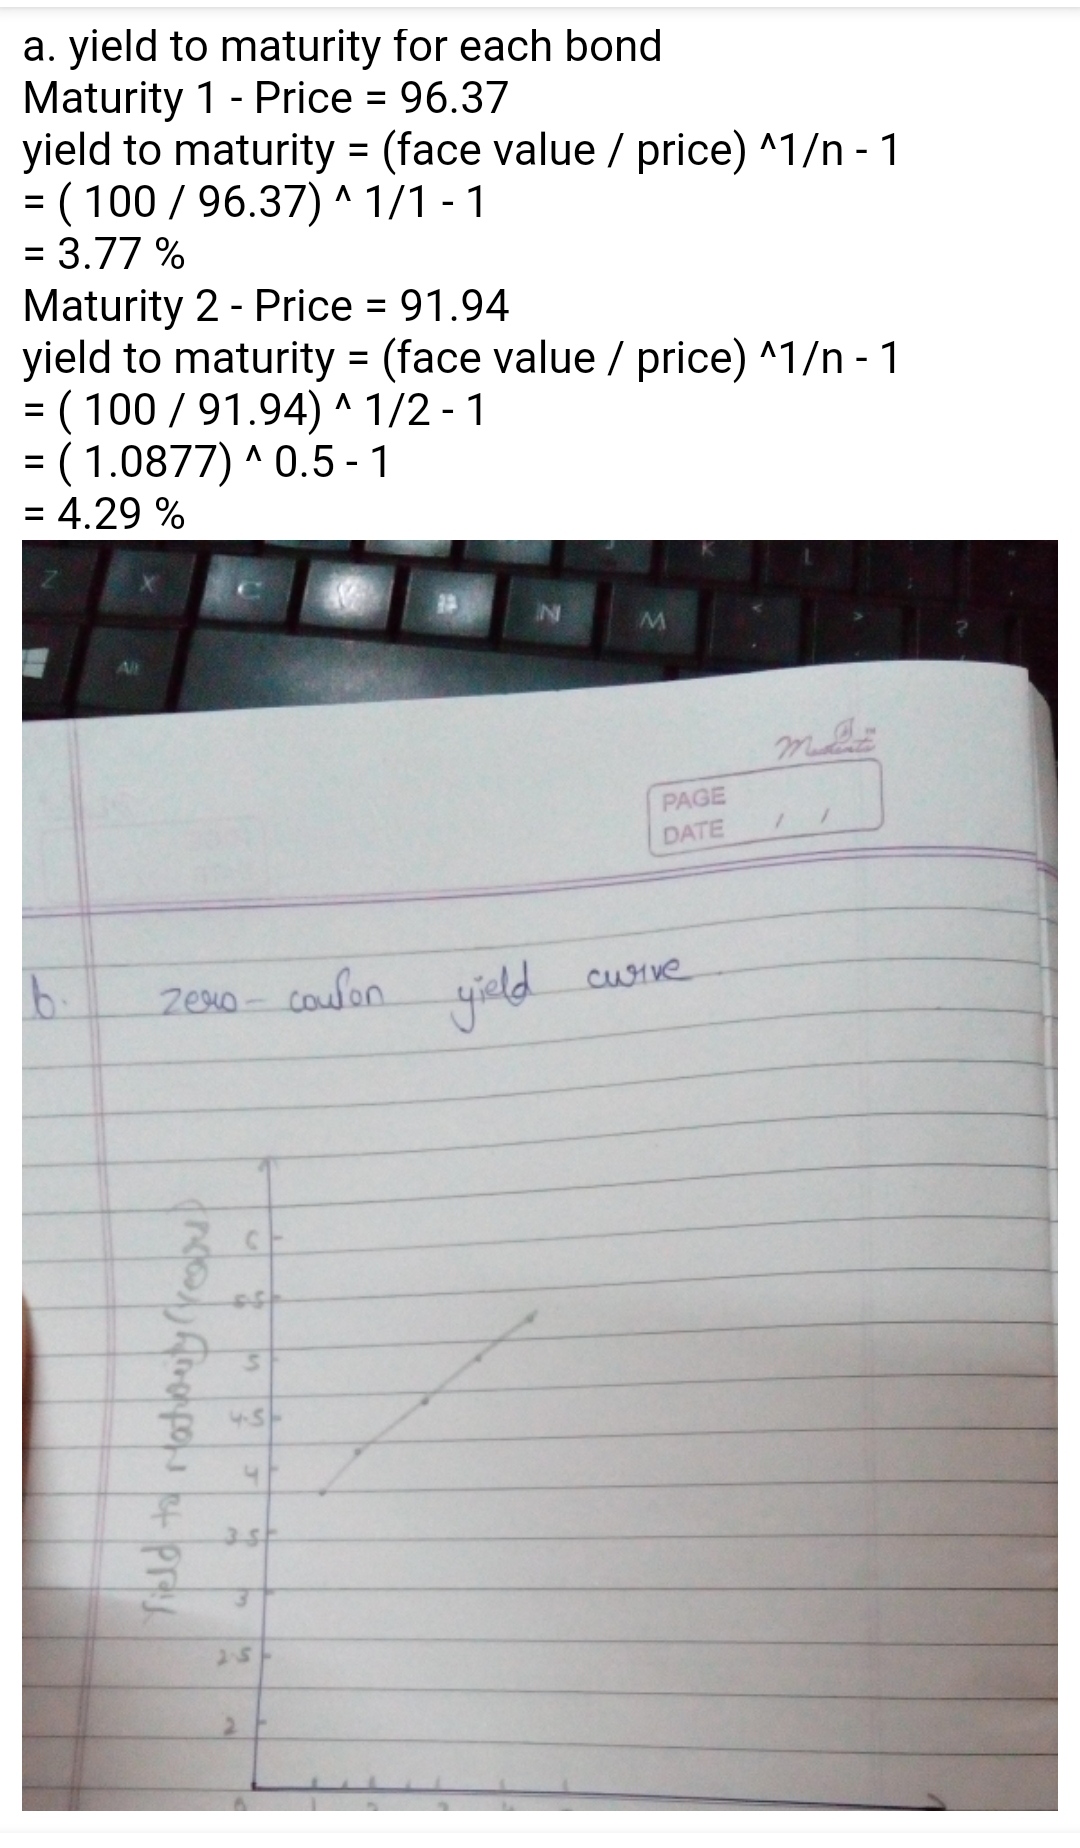 a. yield to maturity for each bond
Maturity 1 - Price = 96.37
yield to maturity = (face value / price) ^1/n - 1
= ( 100 / 96.37) ^ 1/1 - 1
= 3.77 %
Maturity 2 - Price = 91.94
yield to maturity = (face value / price) ^1/n - 1
= ( 100 / 91.94) ^ 1/2 - 1
= ( 1.0877) ^ 0.5 - 1
= 4.29 %
Z X C V B N M < > ?
K L
Alt
PAGE
DATE / /
b. zero - coupon yield curve
Yield to Maturity (Years)
6
5.5
5
4.5
4
3.5
3
2.5
2